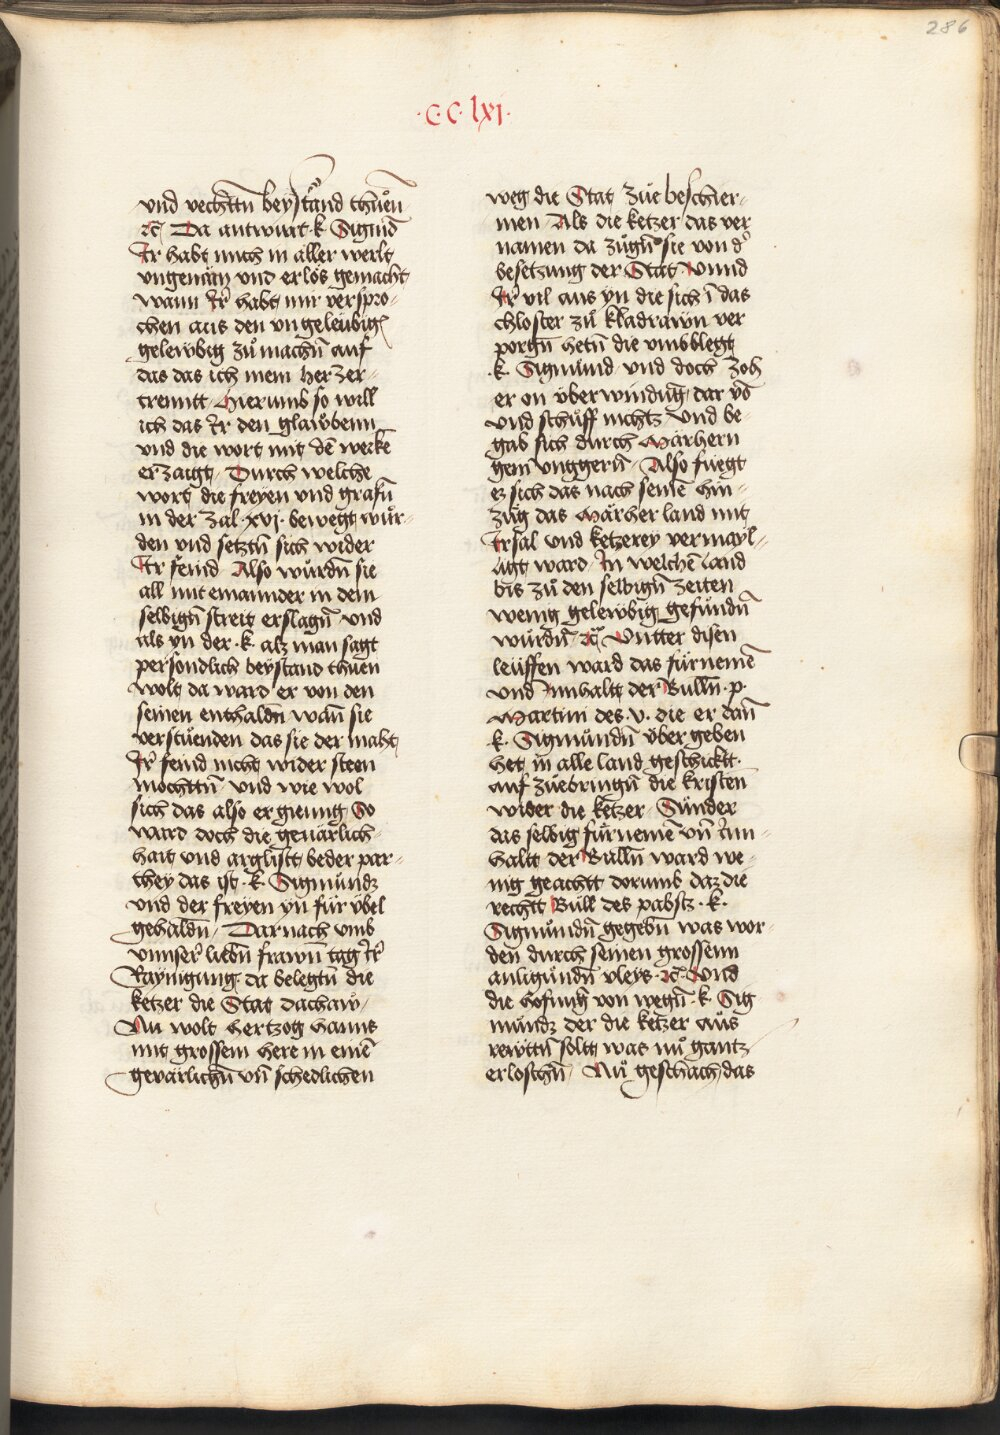 286
·c·c·lxj·
und vechttn̄ beÿstān̄d thuͦen̄
ꝛc̄ Da antwurt·k·Sigmd̄
Ir habt mich in aller werlt
ungenäm und erlos gemacht
wann Ir habt mir verspro-
chen aus den ungeleubigē
gelewbig zuͦ machn̄ auf
das das ich mein herzer-
trennt / Hierumb so will
ich das Ir den glawbenn
und die wort mit dē werkē
erzaigt / Durch welche
wort die freyen und grafn̄
in der zal·xvj·bewegt wuͦr-
den und setztn̄ sich wider
Ir feind Also wuͦrdn̄ sie
all mit einannder in dem
selbign̄ streit erslagn̄ und
als yn der·k·alz man sagt
persondlich beystand thuen
wolt da ward er von den
seinen enthaldn̄ wan̄ sie
verstuenden das sie der maht
Ir feind nicht wider steen
mochttn̄ und wie wol
sich das also ergieng So
ward doch die gevärlich-
hait und arglistt beder par-
they das ist·k·Sigmundz
und der freyen yn fuͤr ybel
gehaldn̄ / Dar nach umb
unnser liebn̄ frawn̄ tag Irer
Raynigung da belegtn̄ die
ketzer die Stat dachaw /
Nu wolt hertzog hanns
mit grossem here in einē
gevärlichn̄ un̄ schedlichen
weg die Stat züe beschier-
men Als die ketzer das ver
namen da zuͦgn̄ sie von dˀ
besetzung der Stat Unnd
Ir vil aus yn die sich ī das
chloster zuͦ kladrawn ver
porgn̄ hetn̄ die umbblegt
·k·Sigmund und doch zoh
er on überwindūg dar vō
und schuͦff nichtz und be-
gab sich durch Märhern
gein unggern̄ Also fuegt
ez sich das nach seinē hin-
zug das Märherland mit
Irsal und ketzerey vermayl-
ligt ward In welchē land
bis zuͦ den selbign̄ zeiten
wenig gelewbig gefundn̄
wurdn̄ ꝛc̄ Untter disen
leuffen ward das fuͤrnemē
und Innhaltt der Bulln̄·p·
Martini des·v·die er dan̄
·k·Sigmundn̄ über geben
het in alle land geschicktt·
auf züebringn̄ die kristen
wider die ketzer Sunder
das selbig fuͤrnemē un̄ Inn-
haltt der Bulln̄ ward we-
nig geachtt dorumb daz die
rechtt Bull des pabstz·k·
Sigmundn̄ gegebn̄ was wor-
den durch seinen grossenn
anligundn̄ vleys·ꝛc̄·Und
die hofnung von wegn̄·k·Sig
mundz der die ketzer aus
rewttn̄ soltt was nuͦ gantz
erloschn̄ / Nuͦ geschach das